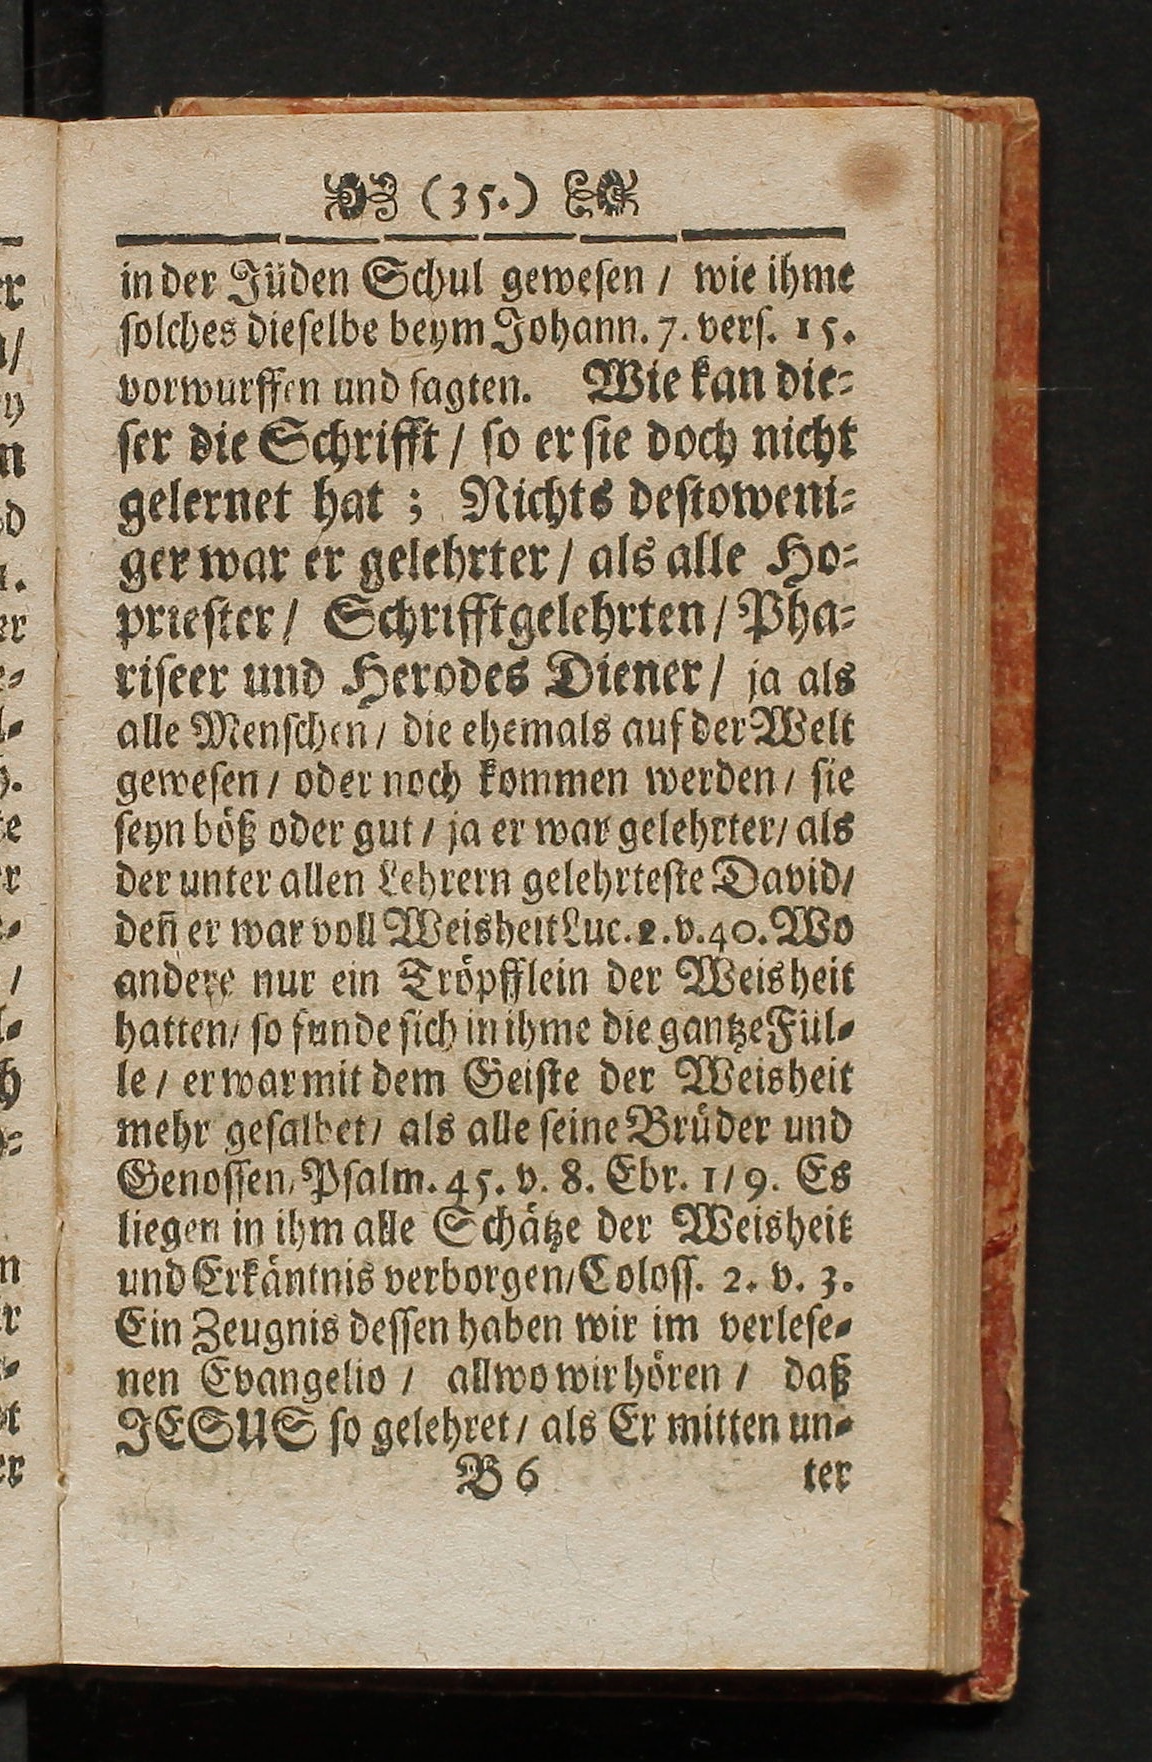 (35.)
in der Jüden Schul gewesen / wie ihme
solches dieselbe beym Johann. 7. vers. 15.
vorwurffen und sagten. Wie kan die-
ser die Schrifft / so er sie doch nicht
gelernet hat ; Nichts destoweni-
ger war er gelehrter / als alle Ho-
priester / Schrifftgelehrten / Pha-
riseer und Herodes Diener / ja als
alle Menschen / die ehemals auf der Welt
gewesen / oder noch kommen werden / sie
seyn böß oder gut / ja er war gelehrter / als
der unter allen Lehrern gelehrteste David /
deñ er war voll Weisheit Luc. 2. v. 40. Wo
andere nur ein Tröpfflein der Weisheit
hatten / so funde sich in ihme die gantze Fül-
le / er war mit dem Geiste der Weisheit
mehr gesalbet / als alle seine Brüder und
Genossen, Psalm. 45. v. 8. Ebr. 1 / 9. Es
liegen in ihm alle Schätze der Weisheit
und Erkäntnis verborgen / Coloss. 2. v. 3.
Ein Zeugnis dessen haben wir im verlese-
nen Evangelio / allwo wir hören / daß
JESUS so gelehret / als Er mitten un-
B 6 ter